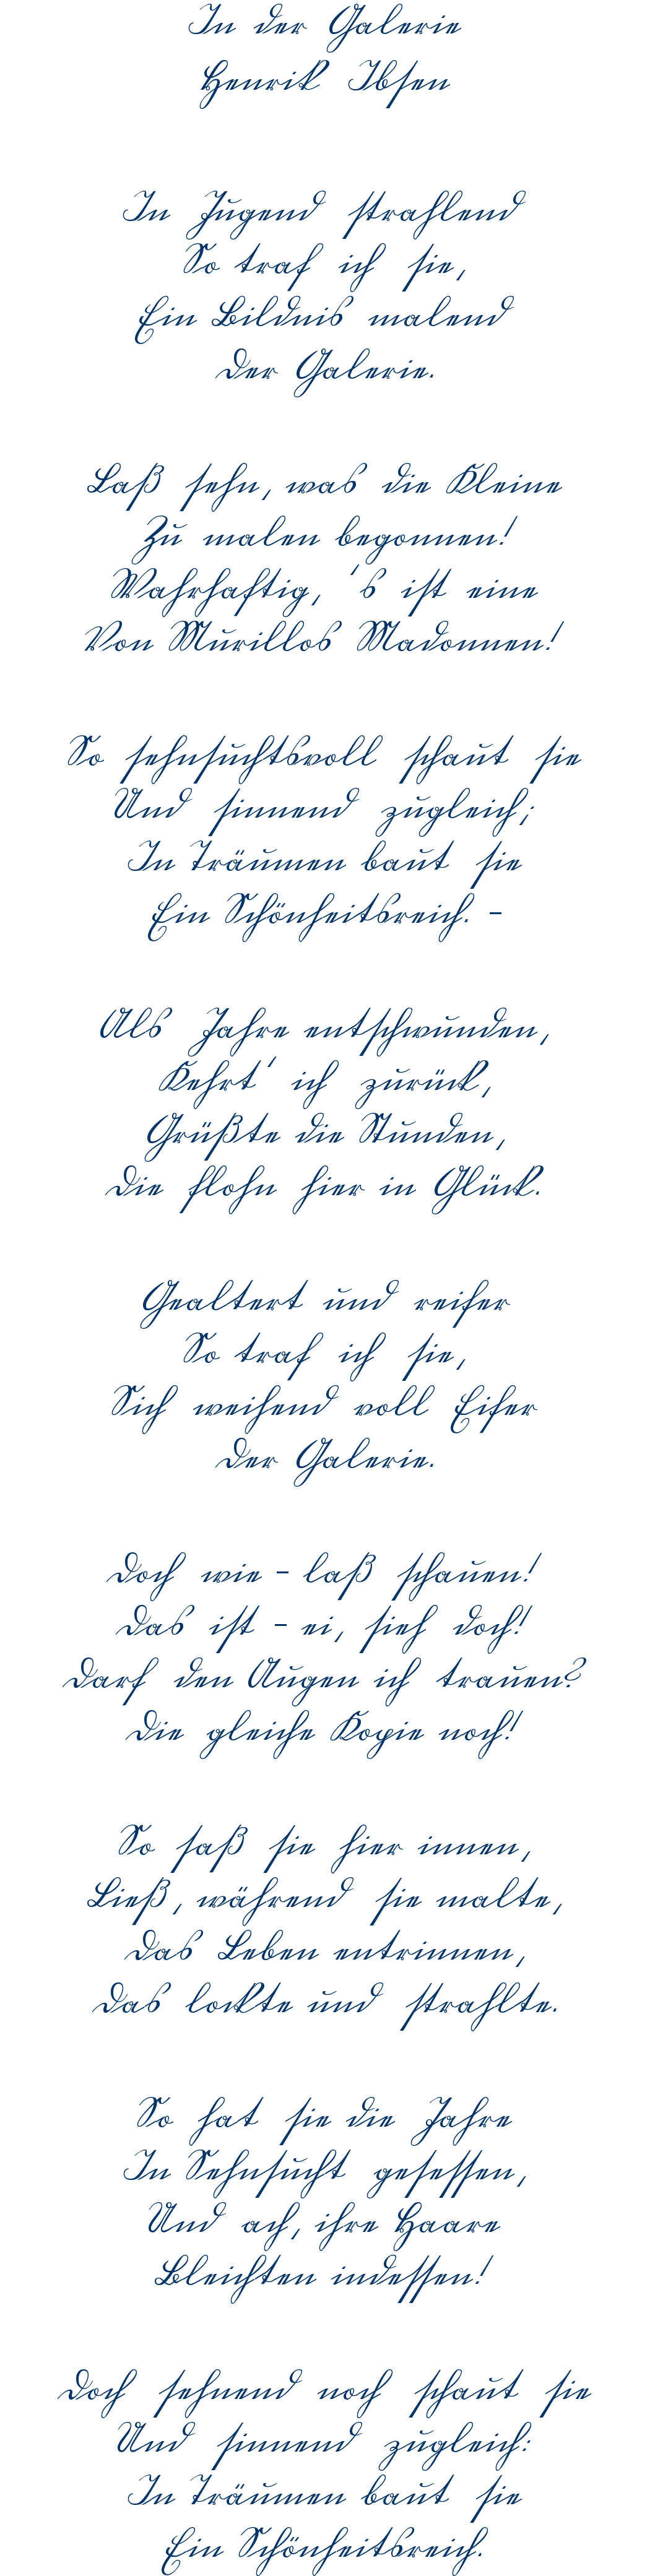 In der Galerie
Henrik Ibsen
In Jugend strahlend
So traf ich sie,
Ein Bildnis malend
Der Galerie.
Laß sehn, was die Kleine
Zu malen begonnen!
Wahrhaftig, 's ist eine
Von Murillos Madonnen!
So sehnsuchtsvoll schaut sie
Und sinnend zugleich;
In Träumen baut sie
Ein Schönheitsreich. –
Als Jahre entschwunden,
Kehrt' ich zurück,
Grüßte die Stunden,
Die flohn hier in Glück.
Gealtert und reifer
So traf ich sie,
Sich weihend voll Eifer
Der Galerie.
Doch wie – laß schauen!
Das ist – ei, sieh doch!
Darf den Augen ich trauen?
Die gleiche Kopie noch!
So saß sie hier innen,
Ließ, während sie malte,
Das Leben entrinnen,
Das lockte und strahlte.
So hat sie die Jahre
In Sehnsucht gesessen,
Und ach, ihre Haare
Bleichten indessen!
Doch sehnend noch schaut sie
Und sinnend zugleich:
In Träumen baut sie
Ein Schönheitsreich.